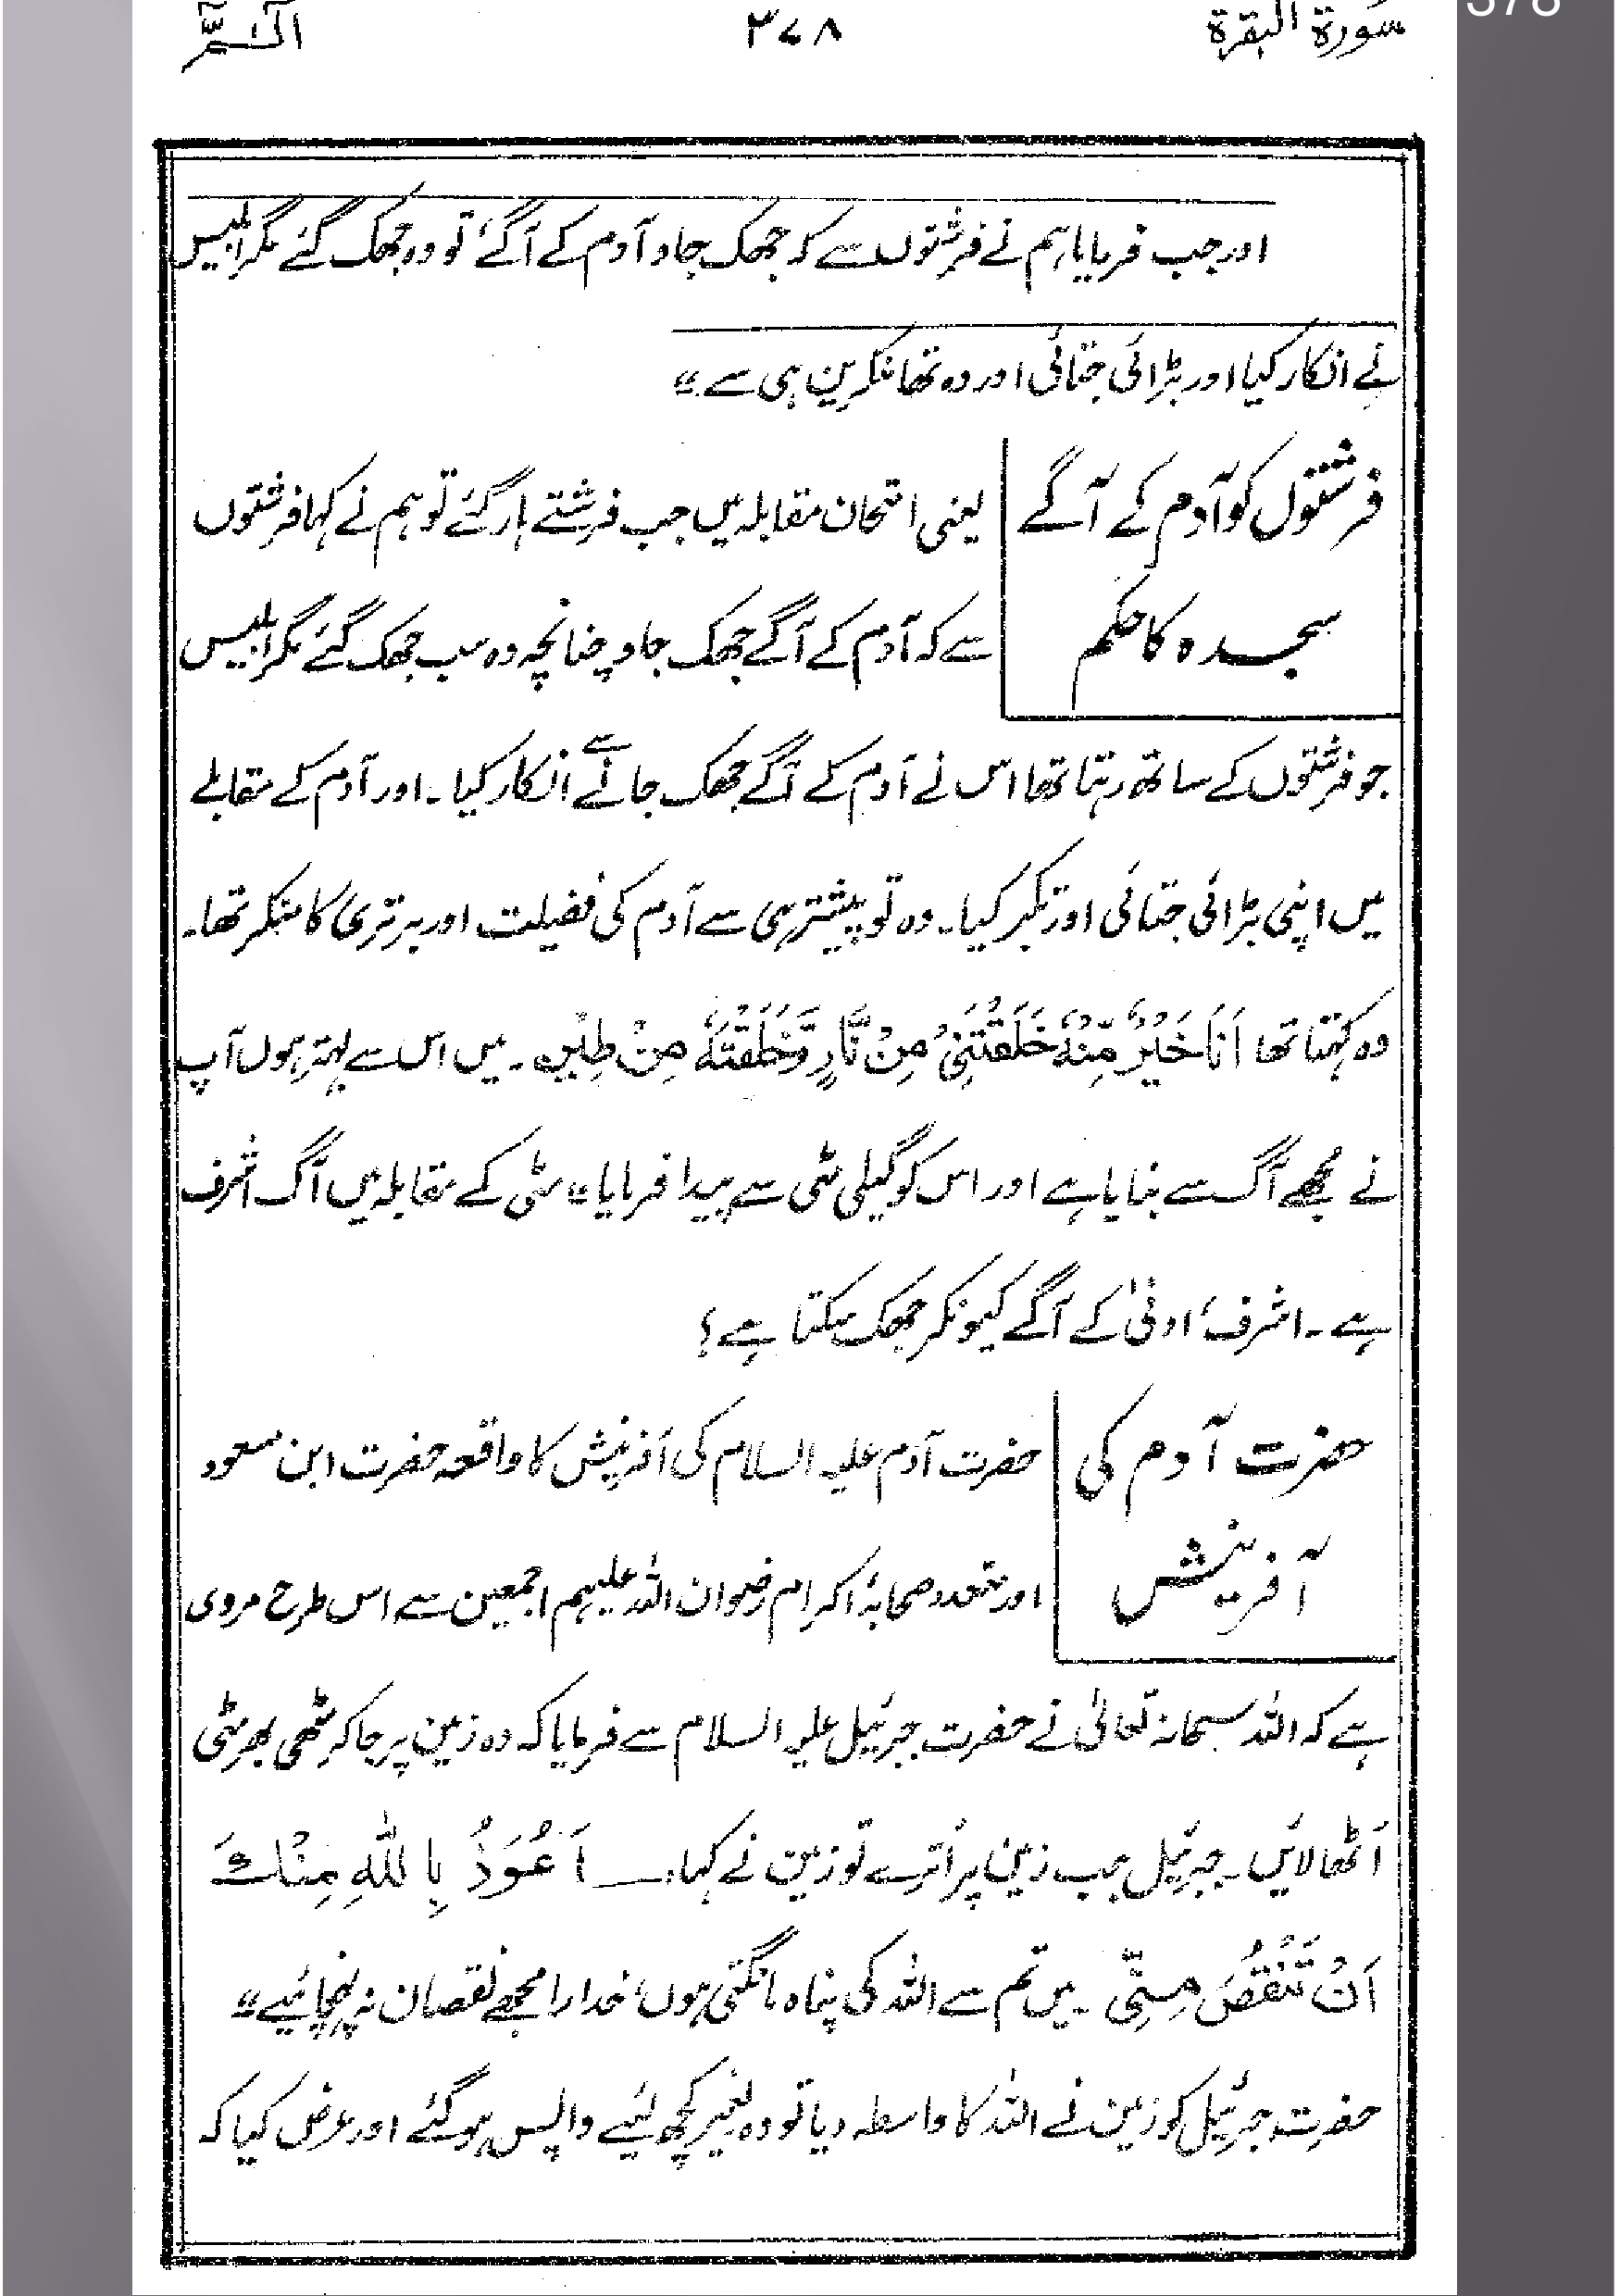 سورة البقرة ٣٧٨ الٓمّٓ
اور جب فرمایا ہم نے فرشتوں سے کہ جھک جاو آدم کے آگے تو وہ جھک گئے مگر ابلیس
نے انکار کیا اور بڑائی جتائی اور وہ تھا منکرین ہی سے "
فرشتوں کو آدم کے آگے
سجدہ کا حکم
یعنی امتحان مقابلہ میں جب فرشتے ہار گئے تو ہم نے کہا فرشتوں
سے کہ آدم کے آگے جھک جاو چنانچہ وہ سب جھک گئے مگر ابلیس
جو فرشتوں کے ساتھ رہتا تھا اس نے آدم کے آگے جھک جانے سے انکار کیا ۔ اور آدم کے مقابلے
میں اپنی بڑائی جتائی اور تکبر کیا ۔ وہ تو پیشتر ہی سے آدم کی فضیلت اور برتری کا منکر تھا ۔
وہ کہتا تھا اَنَا خَیْرٌ مِّنْهُ خَلَقْتَنِیْ مِنْ نَّارٍ وَّخَلَقْتَهٗ مِنْ طِیْنٍ ۔ میں اس سے بہتر ہوں آپ
نے مجھے آگ سے بنایا ہے اور اس کو گیلی مٹی سے پیدا فرمایا " مٹی کے مقابلہ میں آگ اشرف
ہے ۔ اشرف، ادنیٰ کے آگے کیونکر جھک سکتا ہے ؟
حضرت آدم کی
آفرینش
حضرت آدم علیہ السلام کی آفرینش کا واقعہ حضرت ابن مسعود
اور متعدد صحابۂ اکرام رضوان اللہ علیہم اجمعین سے اس طرح مروی
ہے کہ اللہ سبحانہ تعالیٰ نے حضرت جبرئیل علیہ السلام سے فرمایا کہ وہ زمین پر جا کر مٹھی بھر مٹی
اُٹھا لائیں ۔ جبرئیل جب زمین پر اُترے تو زمین نے کہا ۔ اَعُوْذُ بِاللّٰهِ مِنْكَ
اَنْ تَنْقُصَ مِنِّی ۔ میں تم سے اللہ کی پناہ مانگتی ہوں، خدارا مجھے نقصان نہ پہنچائیے "
حضرت جبرئیل کو زمین نے اللہ کا واسطہ دیا تو وہ بغیر کچھ لئیے واپس ہو گئے اور عرض کیا کہ